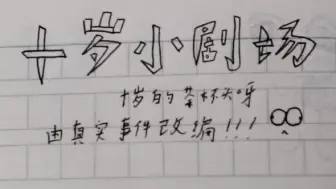 十岁小剧场
十岁的茶杯头呀
由真实事件改编!!!